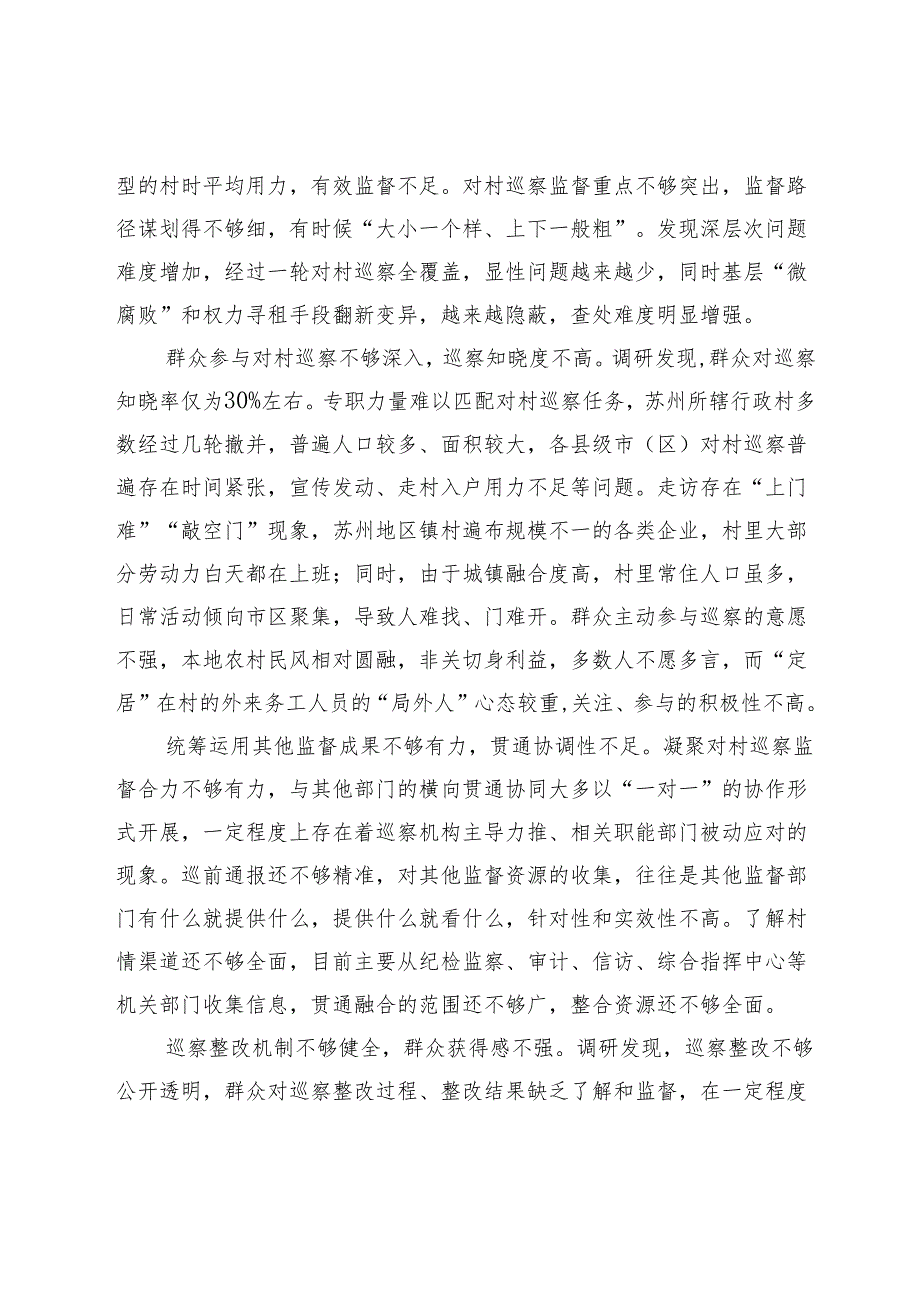 型的村时平均用力，有效监督不足。对村巡察监督重点不够突出，监督路
径谋划得不够细，有时候“大小一个样、上下一般粗”。发现深层次问题
难度增加，经过一轮对村巡察全覆盖，显性问题越来越少，同时基层“微
腐败”和权力寻租手段翻新变异，越来越隐蔽，查处难度明显增强。
群众参与对村巡察不够深入，巡察知晓度不高。调研发现,群众对巡察
知晓率仅为30%左右。专职力量难以匹配对村巡察任务，苏州所辖行政村多
数经过几轮撤并，普遍人口较多、面积较大，各县级市（区）对村巡察普
遍存在时间紧张，宣传发动、走村入户用力不足等问题。走访存在“上门
难”“敲空门”现象，苏州地区镇村遍布规模不一的各类企业，村里大部
分劳动力白天都在上班；同时，由于城镇融合度高，村里常住人口虽多，
日常活动倾向市区聚集，导致人难找、门难开。群众主动参与巡察的意愿
不强，本地农村民风相对圆融，非关切身利益，多数人不愿多言，而“定
居”在村的外来务工人员的“局外人”心态较重,关注、参与的积极性不高。
统筹运用其他监督成果不够有力，贯通协调性不足。凝聚对村巡察监
督合力不够有力，与其他部门的横向贯通协同大多以“一对一”的协作形
式开展，一定程度上存在着巡察机构主导力推、相关职能部门被动应对的
现象。巡前通报还不够精准，对其他监督资源的收集，往往是其他监督部
门有什么就提供什么，提供什么就看什么，针对性和实效性不高。了解村
情渠道还不够全面，目前主要从纪检监察、审计、信访、综合指挥中心等
机关部门收集信息，贯通融合的范围还不够广，整合资源还不够全面。
巡察整改机制不够健全，群众获得感不强。调研发现，巡察整改不够
公开透明，群众对巡察整改过程、整改结果缺乏了解和监督，在一定程度